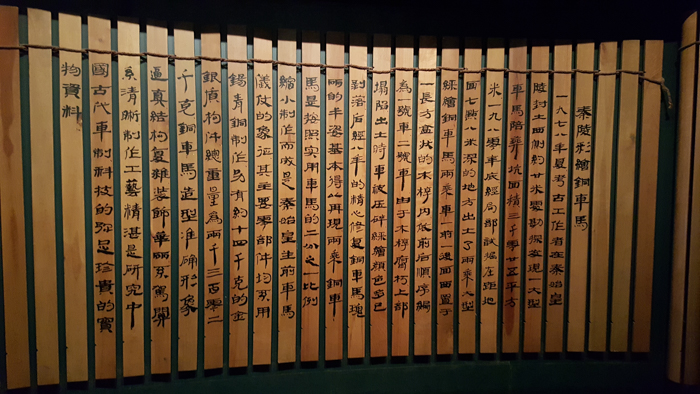 秦陵彩繪銅車馬
一九七八年夏考古工作者在秦始皇
陵封土西側約廿米處勘探發現一大型
車馬陪葬坑面積三千零廿五平方
米一九八零年底經局部試掘在距地
面七點八米深的地方出土了兩乘大型
綵繪銅車馬兩乘車一前一後面西置于
一長方盒狀的木槨內依前后順序編
為一號車二號車由于木槨腐朽上部
塌陷出土時車被壓碎綵繪顏色多已
剝落后經八年的精心修复銅車馬瑰
麗的丰姿基本得以再現兩乘銅車
馬是按照實用車馬的二分之一比例
縮小制作而成是秦始皇生前車馬
儀仗的象征其主要零部件均系用
錫青銅制作另有約十四千克的金
銀質构件總重量為兩千三百零二
千克銅車馬造型准确形象
逼真結构复雜裝飾華麗系駕關
系清晰制作工藝精湛是研究中
國古代車制科技的弥足珍貴的實
物資料